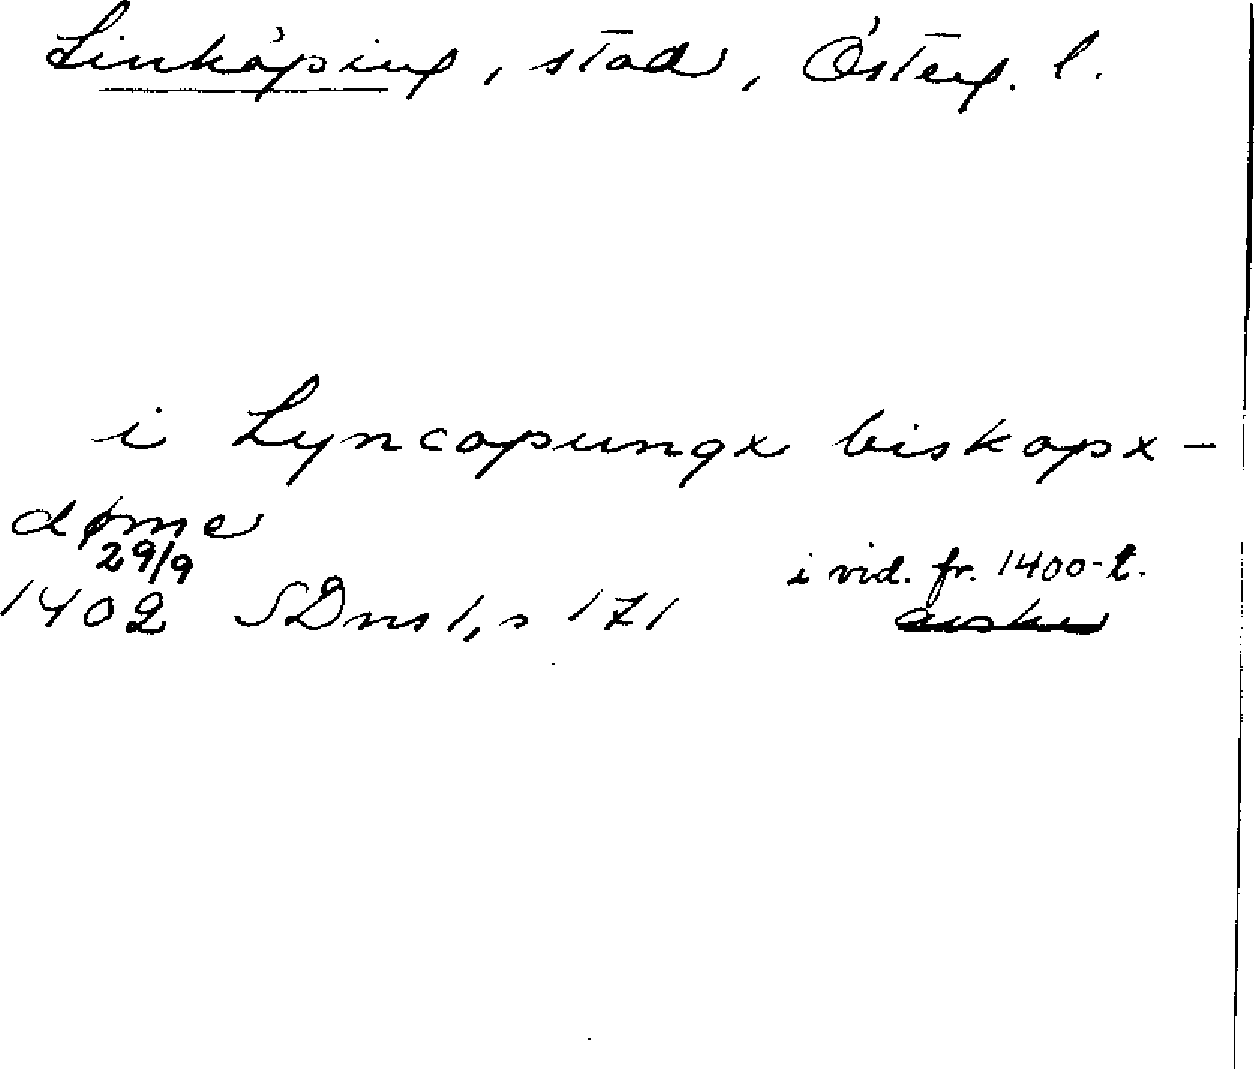 Linköping, stad, Österg. l.
i Lyncopungx biskopx-
døme
29/9
1402 SDns 1, s 171
i vid. fr. 1400-t.